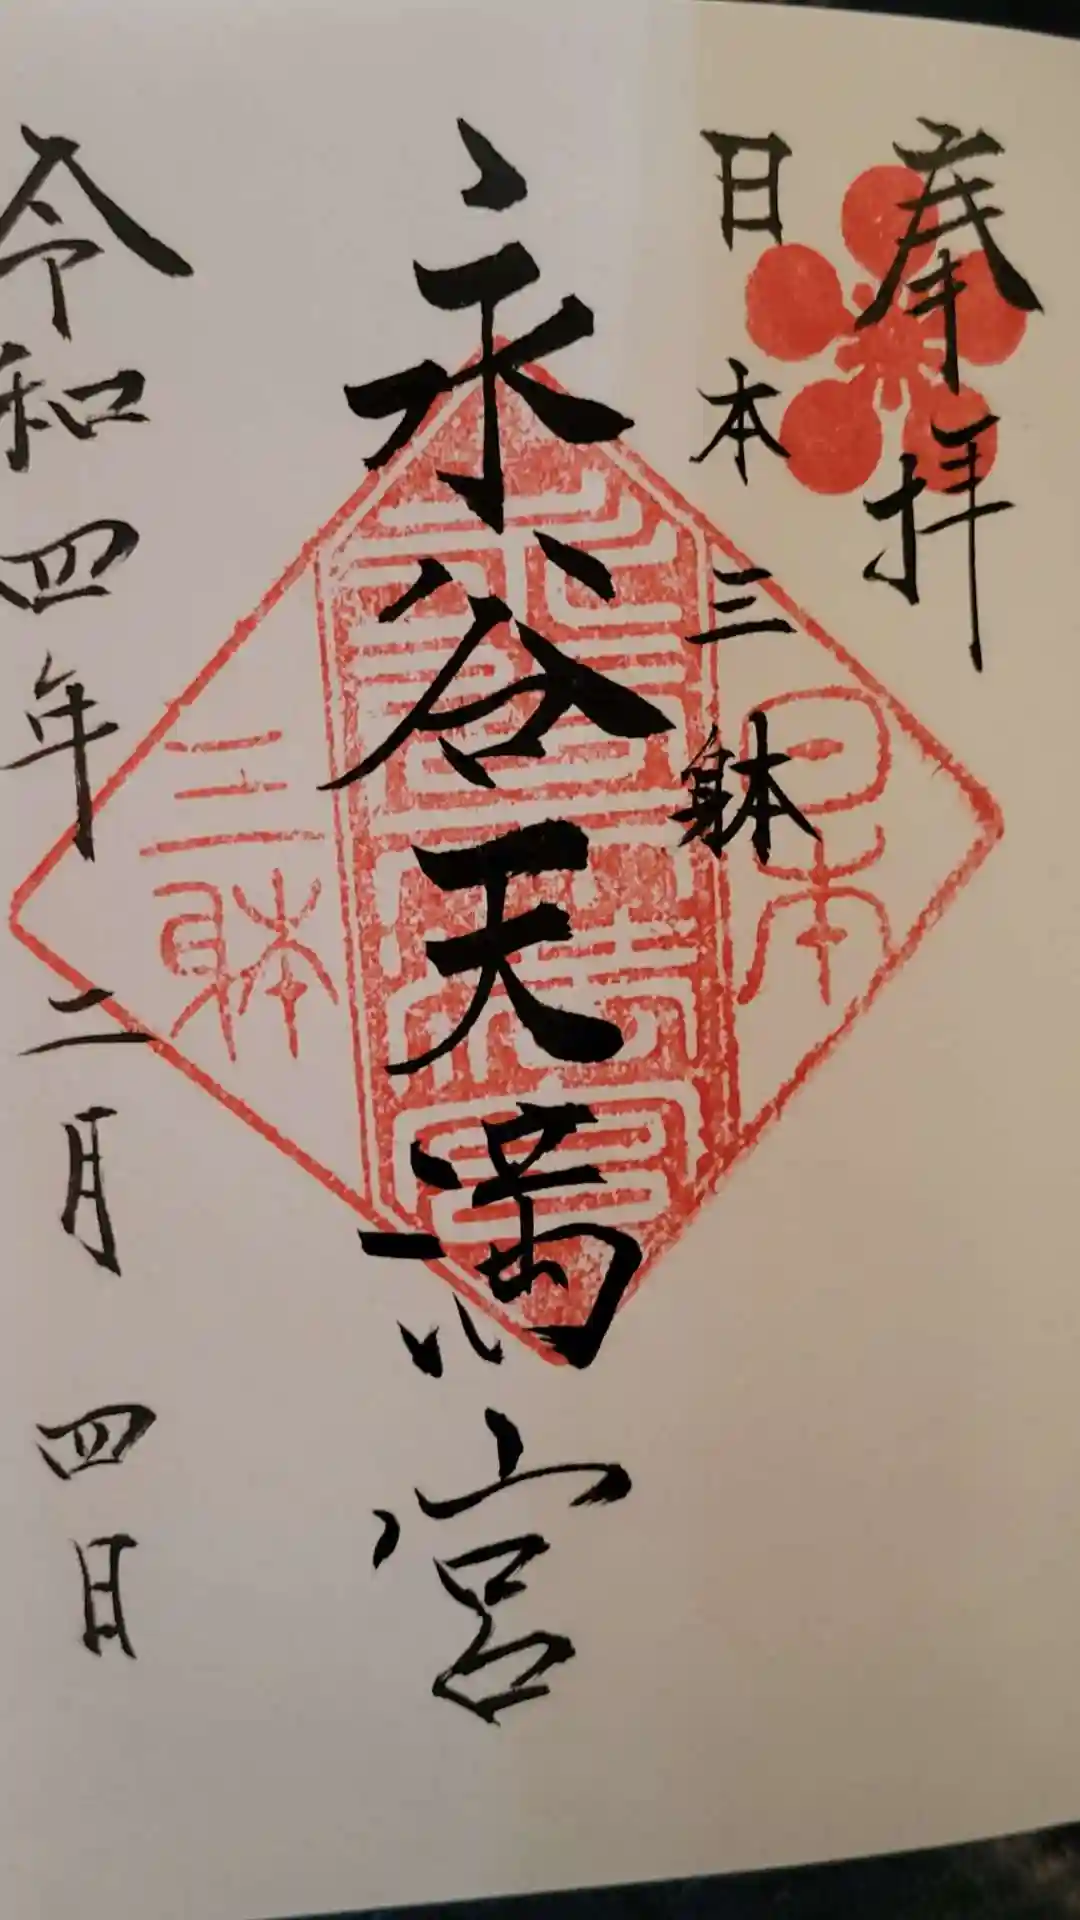 奉拝
日本三躰
永谷天満宮
令和四年二月四日
日本
三躰